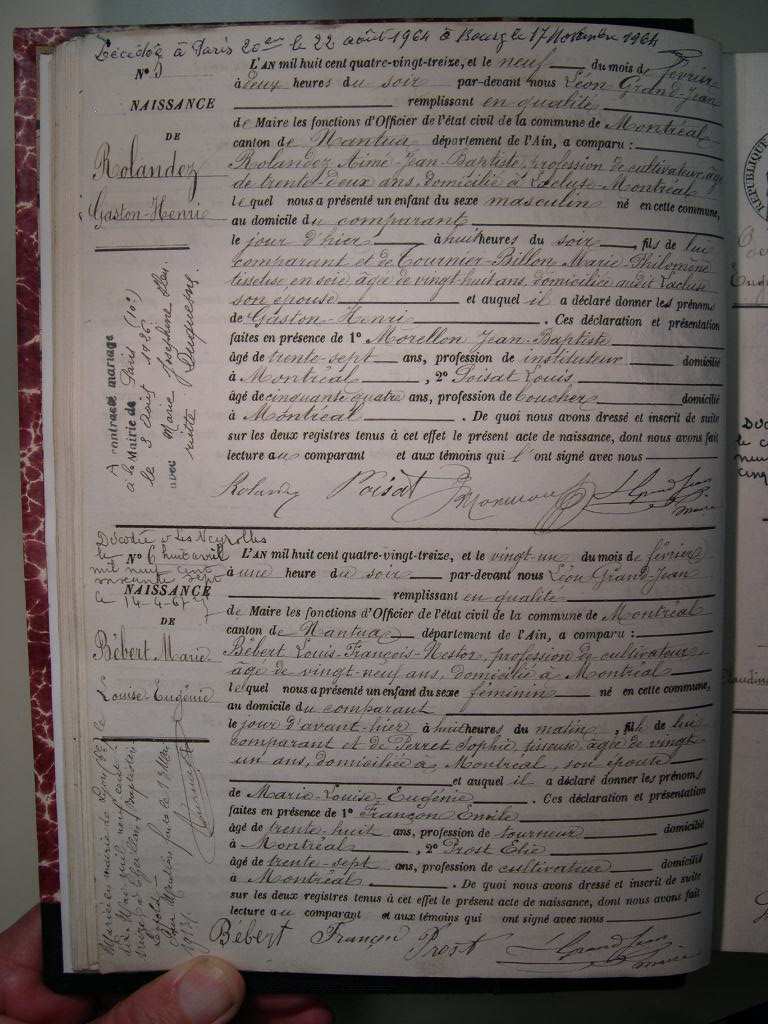 Décédé à Paris 20ème le 22 août 1964 à Bourg le 17 Novembre 1964
N° 5
NAISSANCE
DE
Rolandez
Gaston-Henri
A contracté mariage
à la Mairie de Paris (10e)
le 3 Août 1926
avec Marie Josephine
Duquesne
L'AN mil huit cent quatre-vingt-treize, et le neuf du mois de février
à deux heures du soir par-devant nous Léon Grand-Jean
remplissant en qualité
de Maire les fonctions d'Officier de l'état civil de la commune de Montréal
canton de Nantua département de l'Ain, a comparu :
Rolandez Aimé-Jean-Baptiste, profession de cultivateur, âgé
de trente-deux ans, domicilié à Lacluse-Montréal
lequel nous a présenté un enfant du sexe masculin né en cette commune,
au domicile du comparant
le jour d'hier à huit heures du soir, fils de lui
comparant et de Tournier-Billon Marie-Philomène
tisseuse en soie âgée de vingt-huit ans, domiciliée audit Lacluse
son épouse et auquel il a déclaré donner les prénoms
de Gaston-Henri. Ces déclaration et présentation
faites en présence de 1° Morellon Jean-Baptiste
âgé de trente-sept ans, profession de instituteur domicilié
à Montréal, 2° Poisat Louis
âgé de cinquante quatre ans, profession de boucher domicilié
à Montréal. De quoi nous avons dressé et inscrit de suite
sur les deux registres tenus à cet effet le présent acte de naissance, dont nous avons fait
lecture au comparant et aux témoins qui l'ont signé avec nous
Rolandez Poisat Morellon L. Grand Jean
maire
Décédée à Les Neyrolles
le huit avril
mil neuf cent
soixante sept
le 14-4-67
N° 6
NAISSANCE
DE
Bébert Marie
Louise-Eugénie
L'AN mil huit cent quatre-vingt-treize, et le vingt-un du mois de février
à une heure du soir par-devant nous Léon Grand-Jean
remplissant en qualité
de Maire les fonctions d'Officier de l'état civil de la commune de Montréal
canton de Nantua département de l'Ain, a comparu :
Bébert Louis-François-Nestor, profession de cultivateur
âgé de vingt-neuf ans, domicilié à Montréal
lequel nous a présenté un enfant du sexe féminin né en cette commune,
au domicile du comparant
le jour d'avant-hier à huit heures du matin, fille de lui
comparant et de Perret Sophie, âgée de vingt
un ans, domiciliée à Montréal, son épouse
et auquel il a déclaré donner les prénoms
de Marie-Louise-Eugénie. Ces déclaration et présentation
faites en présence de 1° Françon Emile
âgé de trente-huit ans, profession de tourneur domicilié
à Montréal, 2° Prost Elie
âgé de trente-sept ans, profession de cultivateur domicilié
à Montréal. De quoi nous avons dressé et inscrit de suite
sur les deux registres tenus à cet effet le présent acte de naissance, dont nous avons fait
lecture au comparant et aux témoins qui ont signé avec nous
Bébert Françon Prost L. Grand Jean
maire